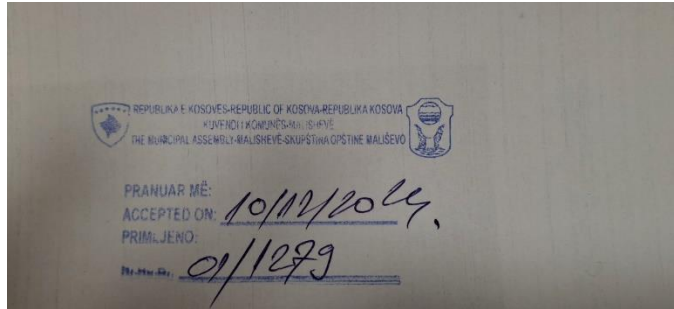 REPUBLIKA E KOSOVËS-REPUBLIC OF KOSOVA-REPUBLIKA KOSOVA
KUVENDI I KOMUNËS-MALISHEVË
THE MUNICIPAL ASSEMBLY-MALISHEVË-SKUPŠTINA OPŠTINE MALIŠEVO
PRANUAR MË:
ACCEPTED ON: 10/12/2024.
PRIMLJENO:
01/1279